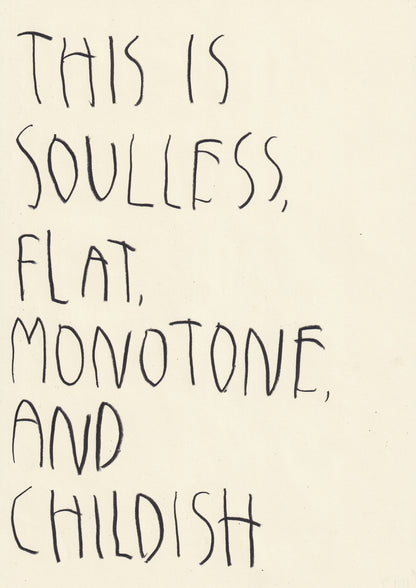 THIS IS
SOULLESS,
FLAT,
MONOTONE,
AND
CHILDISH